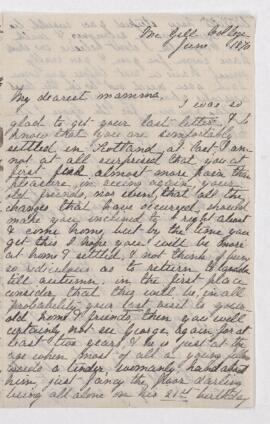 McGill College
June 1870
My dearest mamma,
I was so
glad to get your last letter & to
know that you are comfortably
settled in Scotland at last I am
not at all surprised that you at
first find almost more pain than
pleasure in seeing again your
old friends, nor even that all the
changes that have occurred, should
make you inclined to right about
& come home, but by the time you
get this I hope you will be more
at home & settled, & not think of being
so ridiculous as to return
till autumn. in the first place
consider that this will be, in all
probability your last visit to your
old home & friends, then you will
certainly not see George again for at
least two years & he is just at the
age when most of all a young fellow
needs a tender womanly hand about
him, just fancy the poor darling
being all alone on his 21st birthday